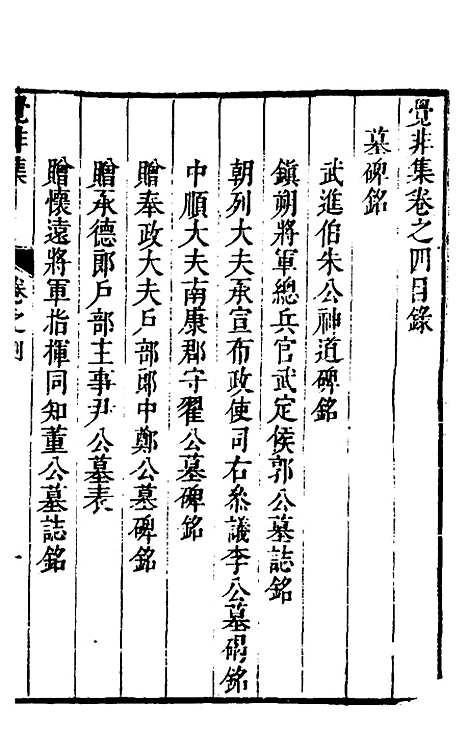 覺非集卷之四目錄
墓碑銘
武進伯朱公神道碑銘
鎮朔將軍總兵官武定侯郭公墓誌銘
朝列大夫承宣布政使司右叅議李公墓碣銘
中順大夫南康郡守翟公墓碑銘
贈奉政大夫戶部郎中鄭公墓碑銘
贈承德郎戶部主事尹公墓表
贈懷遠將軍指揮同知董公墓誌銘
覺非集 卷之四 一